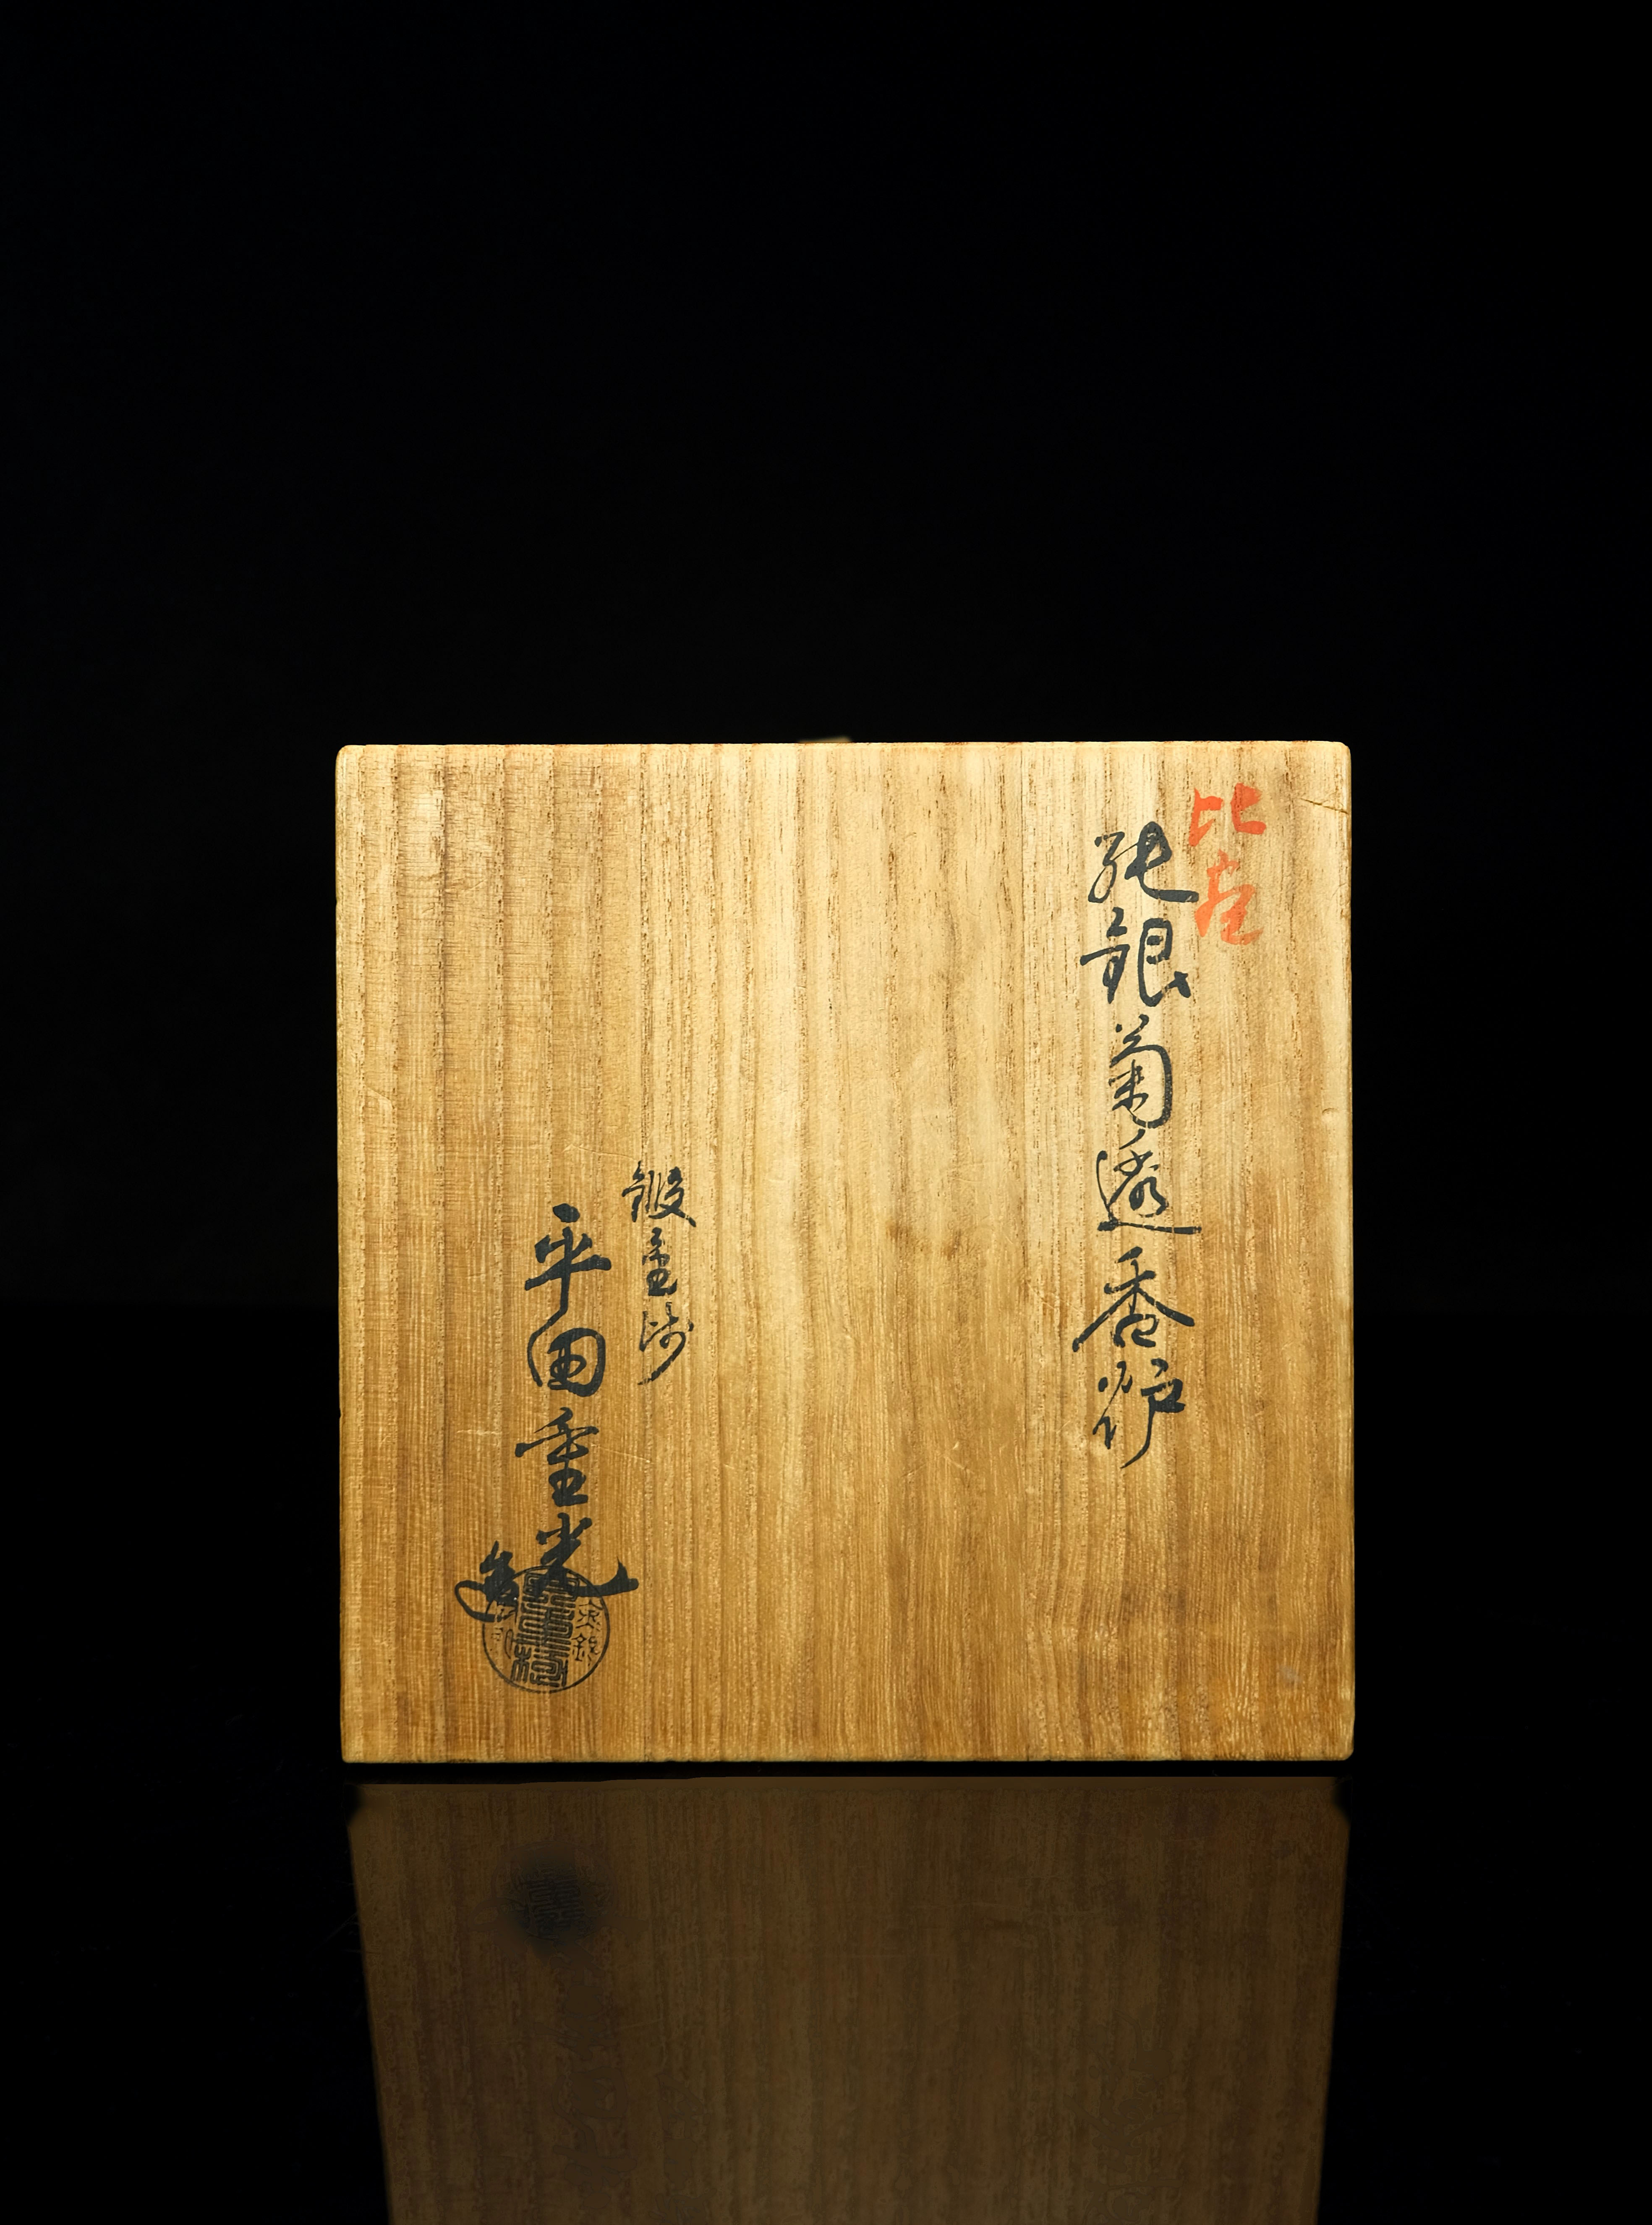 純銀菊透香炉
鍛金師
平田重光
造